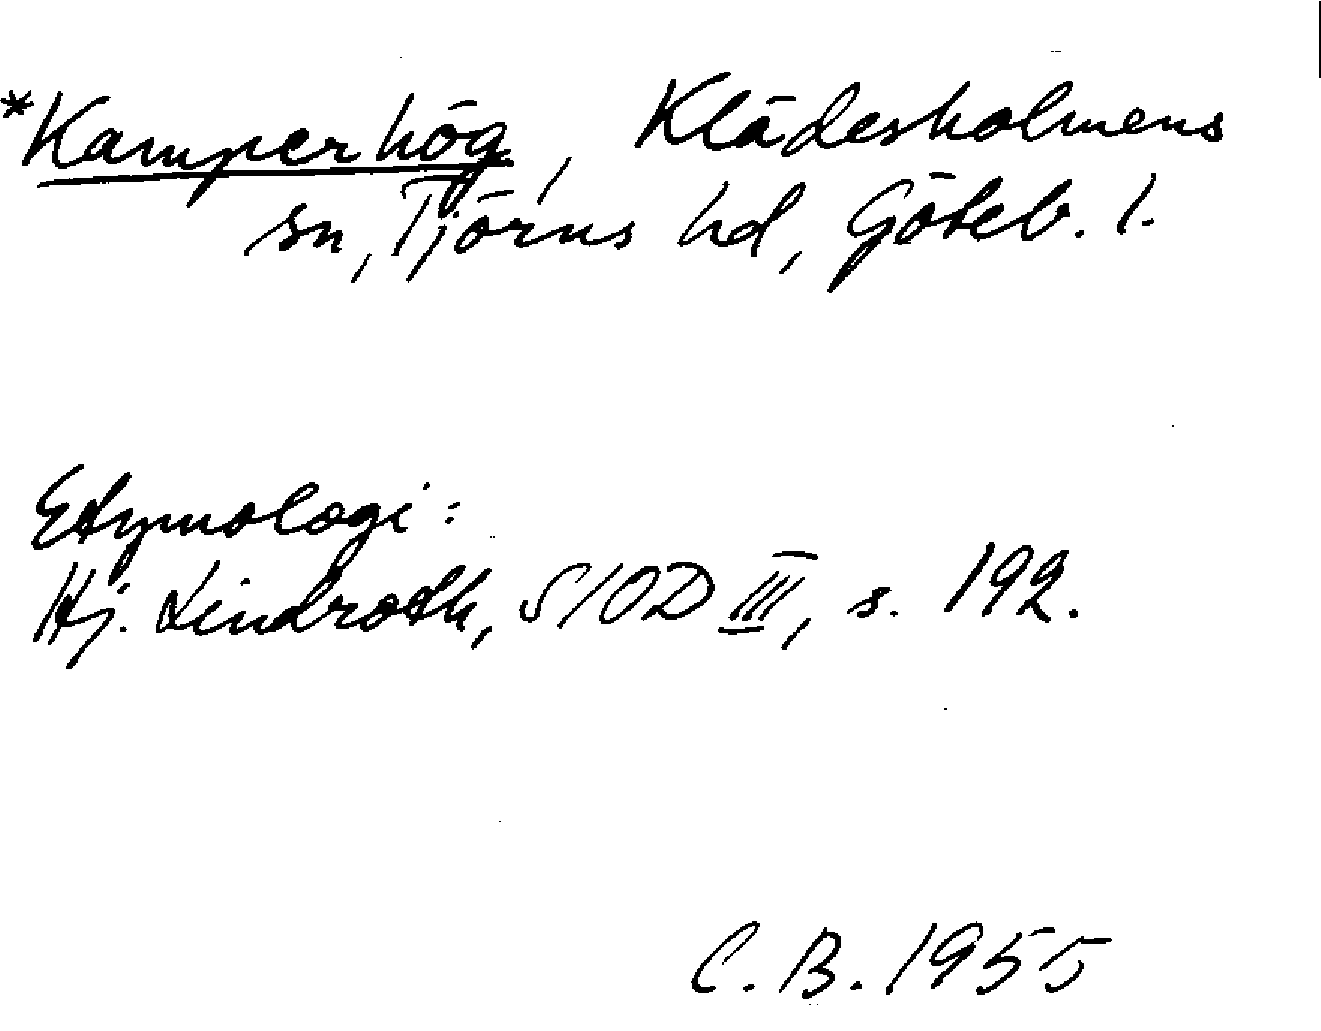 *Kamperhög, Klädesholmens
sn, Tjörns hd, Göteb. l.
Etymologi:
Hj. Lindroth, SIOD III, s. 192.
C. B. 1955